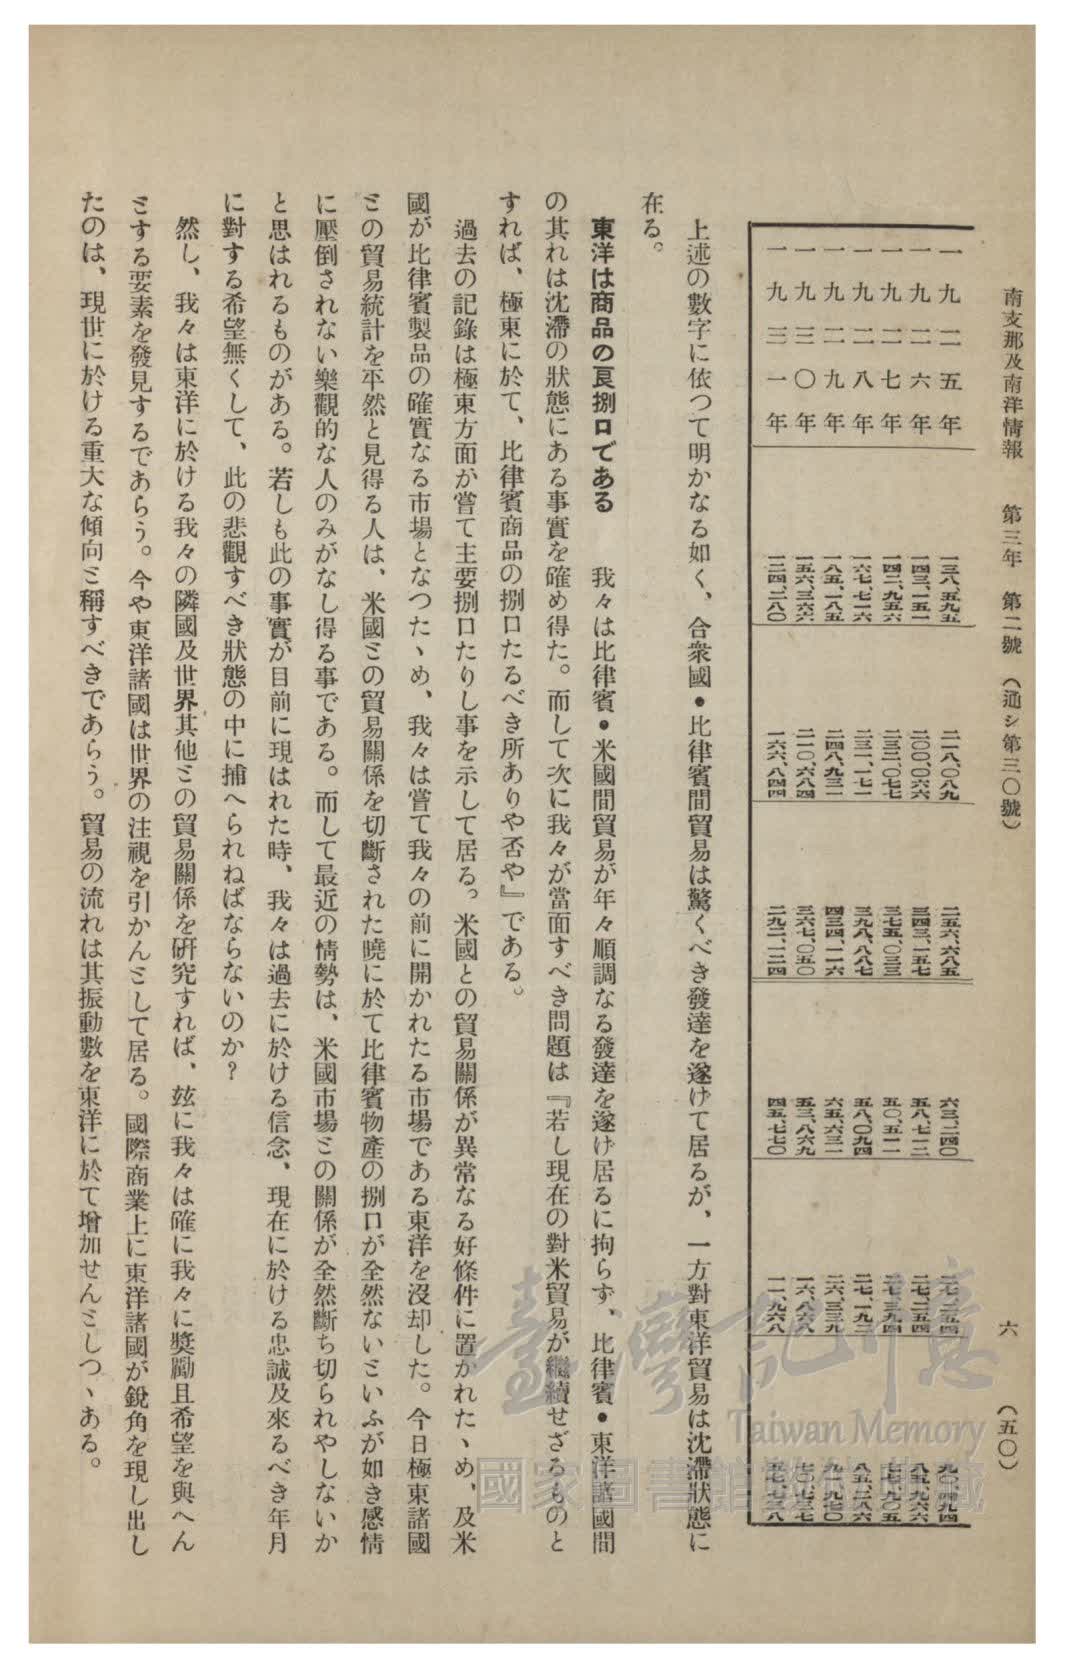 南支那及南洋情報　第三年　第二號　(通シ第三〇號)　六　(五〇)
一九二五年　一三八、五九五　二一八、〇八九　三五六、六八五　六三、二四〇　二七、二五四　九〇、四九四
一九二六年　一四三、一五一　二〇〇、〇〇六　三四三、一五七　五八、七一二　二七、二五四　八五、九六六
一九二七年　一四二、九五六　二三二、〇七七　三七五、〇三三　五〇、五一一　二七、三九四　七七、九〇五
一九二八年　一六七、七一六　二三一、一七一　三九八、八八七　五八、〇九四　二七、一九二　八五、二八六
一九二九年　一八五、一八五　二四八、九三一　四三四、一一六　六五、六三一　二六、三三九　九一、九七〇
一九三〇年　一五六、三六六　二一〇、六八四　三六七、〇五〇　五三、八六九　一六、八六八　七〇、七三七
一九三一年　一二四、二八〇　一六六、八四四　二九一、一二四　四五、七七〇　一一、九六八　五七、七三八
上述の數字に依つて明かなる如く、合衆國•比律賓間貿易は驚くべき發達を遂げて居るが、一方對東洋貿易は沈滯狀態に
在る。
東洋は商品の良捌口である　我々は比律賓•米國間貿易が年々順調なる發達を遂け居るに拘らず、比律賓•東洋諸國間
の其れは沈滯の狀態にある事實を確め得た。而して次に我々が當面すべき問題は『若し現在の對米貿易が繼續せざるものと
すれば、極東に於て、比律賓商品の捌口たるべき所ありや否や』である。
過去の記錄は極東方面が嘗て主要捌口たりし事を示して居る。米國との貿易關係が異常なる好條件に置かれたゝめ、及米
國が比律賓製品の確實なる市場となつたゝめ、我々は嘗て我々の前に開かれたる市場である東洋を沒却した。今日極東諸國
ミの貿易統計を平然と見得る人は、米國ミの貿易關係を切斷された曉に於て比律賓物產の捌口が全然ないミいふが如き感情
に壓倒されない樂觀的な人のみがなし得る事である。而して最近の情勢は、米國市場ミの關係が全然斷ち切られやしないか
と思はれるものがある。若しも此の事實が目前に現はれた時、我々は過去に於ける信念、現在に於ける忠誠及來るべき年月
に對する希望無くして、此の悲觀すべき狀態の中に捕へられねばならないのか?
然し、我々は東洋に於ける我々の隣國及世界其他ミの貿易關係を硏究すれば、玆に我々は確に我々に奬勵且希望を與へん
ミする要素を發見するであらう。今や東洋諸國は世界の注視を引かんミして居る。國際商業上に東洋諸國が銳角を現し出し
たのは、現世に於ける重大な傾向ミ稱すべきであらう。貿易の流れは其振動數を東洋に於て增加せんミしつゝある。
臺灣記憶
Taiwan Memory
國家圖書館數位典藏